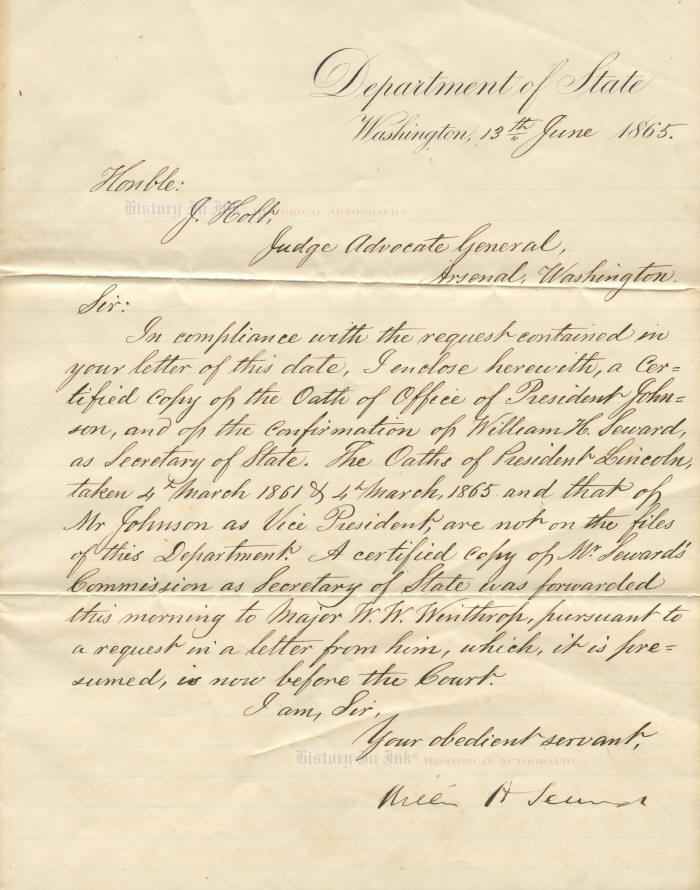 Department of State
Washington, 13th June 1865.
Honble:
History In Ink® Historical Autographs
J. Holt,
Judge Advocate General,
Arsenal, Washington.
Sir:
In compliance with the request contained in
your letter of this date, I enclose herewith, a cer=
tified copy of the Oath of Office of President John=
son, and of the confirmation of William H. Seward,
as Secretary of State. The Oaths of President Lincoln,
taken 4th March 1861 & 4th March, 1865 and that of
Mr Johnson as Vice President, are not on the files
of this Department. A certified copy of Mr. Seward's
Commission as Secretary of State was forwarded
this morning to Major W. W. Winthrop, pursuant to
a request in a letter from him, which, it is pre=
sumed, is now before the Court.
I am, Sir,
Your obedient servant,
History In Ink® Historical Autographs
William H Seward